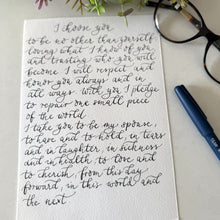 I choose you
to be no other than yourself
loving what I know of you,
and trusting who you will
become. I will respect and
honor you always and in
all ways. With you I pledge
to repair one small piece
of the world.
I take you to be my spouse,
to have and to hold, in tears
and in laughter, in sickness
and in health, to love and
to cherish, from this day
forward, in this world and
the next.